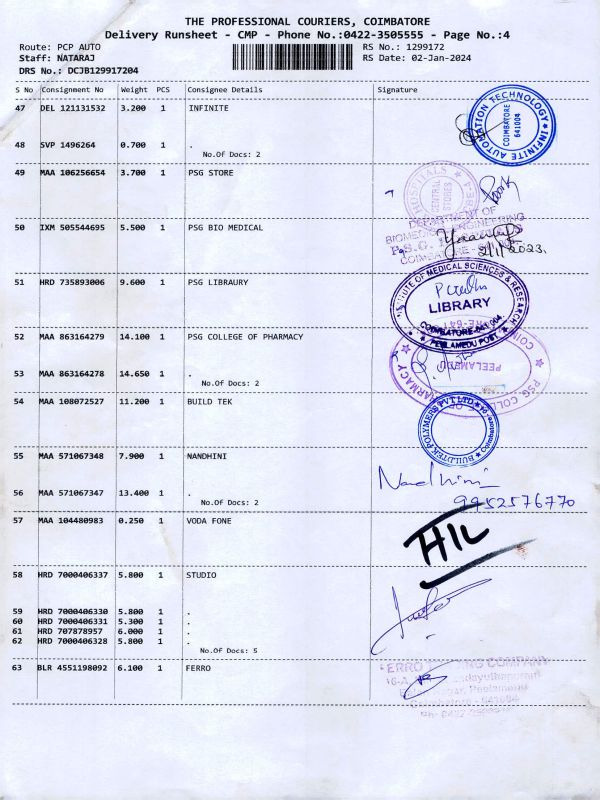 THE PROFESSIONAL COURIERS, COIMBATORE
Delivery Runsheet - CMP - Phone No.:0422-3505555 - Page No.:4
Route: PCP AUTO RS No.: 1299172
Staff: NATARAJ RS Date: 02-Jan-2024
DRS No.: DCJB129917204
S No Consignment No Weight PCS Consignee Details Signature
47 DEL 121131532 3.200 1 INFINITE
INFINITE AUTOMATION TECHNOLOGY
COIMBATORE
641004
48 SVP 1496264 0.700 1 .
No.Of Docs: 2
49 MAA 106256654 3.700 1 PSG STORE
HOSPITALS
CENTRAL
STORES
50 IXM 505544695 5.500 1 PSG BIO MEDICAL
DEPARTMENT OF
BIOMEDICAL ENGINEERING
2/1/2023.
51 HRD 735893006 9.600 1 PSG LIBRAURY
INSTITUTE OF MEDICAL SCIENCES & RESEARCH
LIBRARY
COIMBATORE-641 004
PEELAMEDU POST
52 MAA 863164279 14.100 1 PSG COLLEGE OF PHARMACY
PSG COLLEGE OF PHARMACY
PEELAMEDU
53 MAA 863164278 14.650 1 .
No.Of Docs: 2
54 MAA 108072527 11.200 1 BUILD TEK
BUILDTEK POLYMERS PVT LTD
55 MAA 571067348 7.900 1 NANDHINI
Nandhini
56 MAA 571067347 13.400 1 .
No.Of Docs: 2
9952576770
57 MAA 104480983 0.250 1 VODA FONE
58 HRD 7000406337 5.800 1 STUDIO
59 HRD 7000406330 5.800 1 .
60 HRD 7000406331 5.300 1 .
61 HRD 707878957 6.000 1 .
62 HRD 7000406328 5.800 1 .
No.Of Docs: 5
63 BLR 4551198092 6.100 1 FERRO
COMPANY
Peelamedu
Coimbatore - 641004